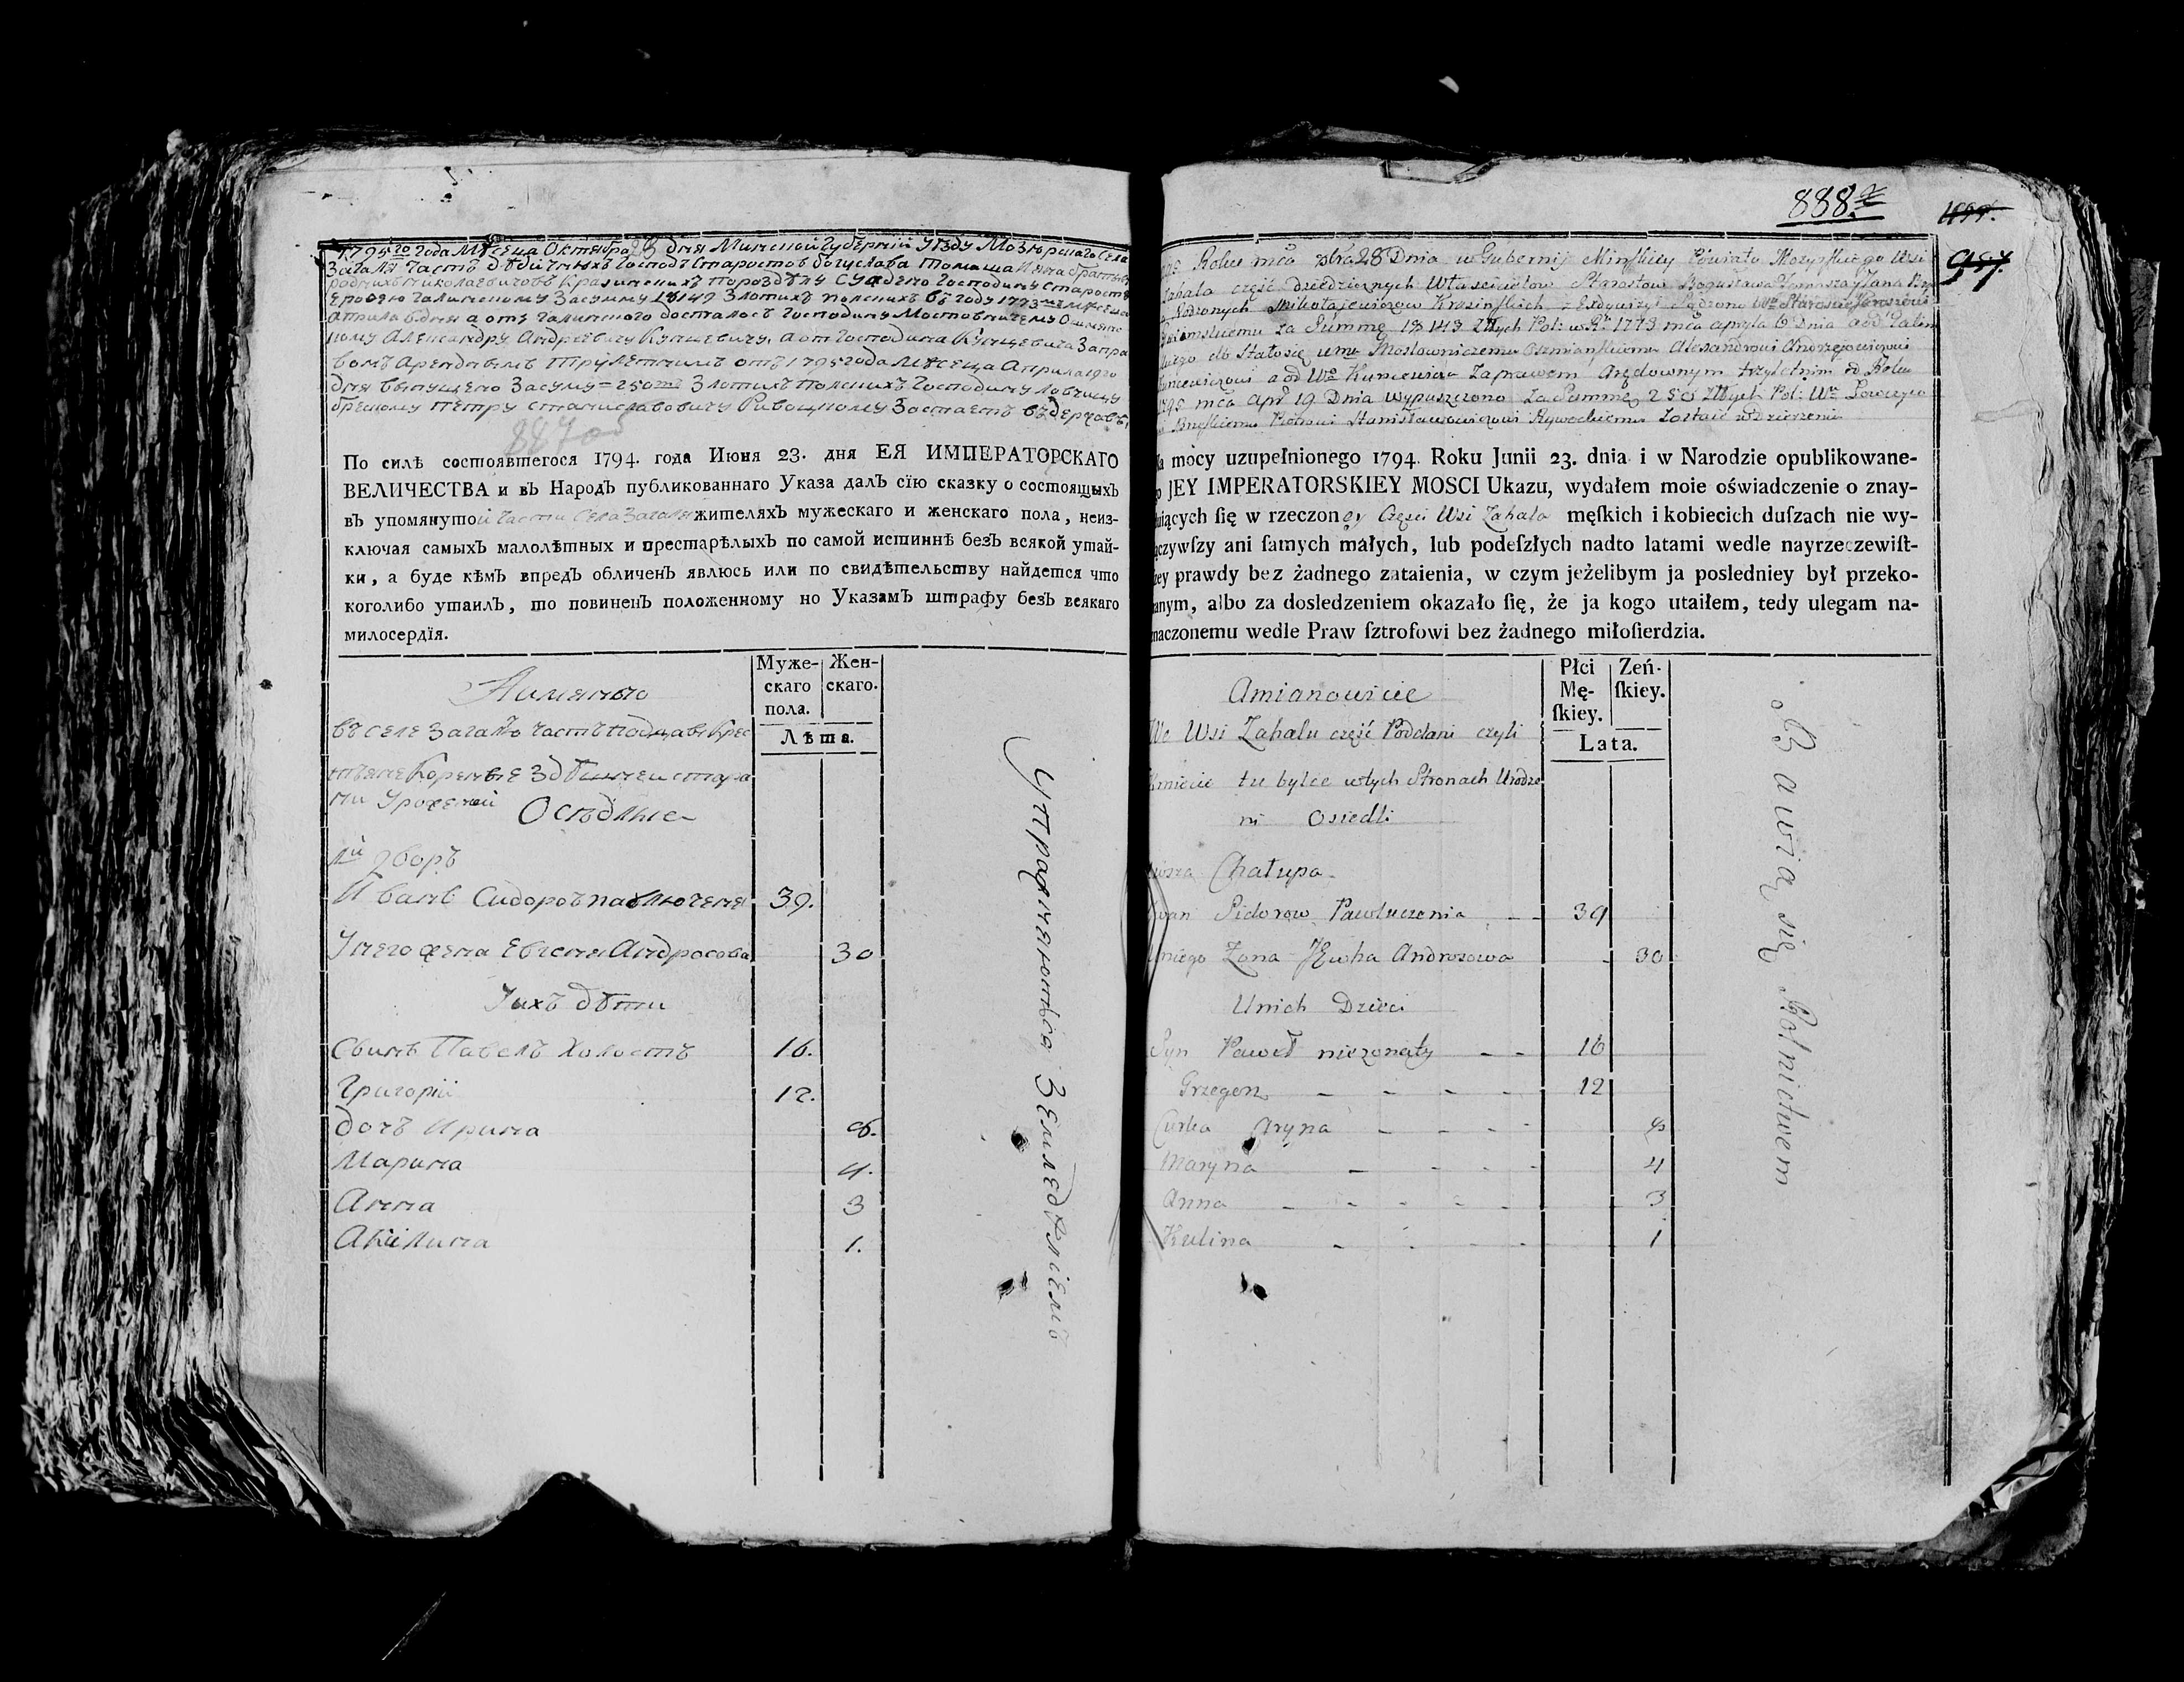 1795го Года Мѣсеца Октября 28 дня Минской Губерніи Уѣзду Мозырского Села
Загаля часть дѣдичныхъ Господъ Старостовъ Богуслава Томаша Ияна братьевъ
родныхъ Николаевичовъ Красинскихъ
Галинскому Засумму 18149 Злотихъ полскихъ году 1773
априля 6 дня а отъ Галинского досталосъ Господину Мостовничему Ошмянс
кому Александру Андреевичу Кунцевичу, а от Господина Кунцевича Запра
вомъ Арендным Трилѣтнимъ отъ 1795 года Мѣсеца Априла 19го
дня выпущено Засуму 250 Злотихъ Полскихъ Господину Ловчицу
Петру Станиславовичу Застаетъ въдержавѣ
887 об
По силѣ состоявшегося 1794. года Июня 23. дня ЕЯ ИМПЕРАТОРСКАГО
ВЕЛИЧЕСТВА и въ Народъ публикованнаго Указа далъ сїю сказку о состоящыхъ
въ упомянутой части Села Загаля жителяхъ мужескаго и женскаго пола, неиз-
ключая самыхъ малолѣтных и престарѣлыхъ по самой истиннѣ безъ всякой утай-
ки, а буде кѣмъ впредъ обличенъ явлюсь или по свидѣтельству найдется что
коголибо утаилъ, то повиненъ положенному но Указамъ штрафу безъ всякаго
милосердїя.
Аимянно
Муже-
скаго
пола.
Жен-
скаго.
Лѣта.
въ селе Загалю часть Подцавы Крес
тьяне Коренные Здѣшнеи стора
ни Урожений
Осѣдлые
1й дворъ
Иванъ Сидоровъ Павлюченя 39.
Унего жена Евгеня Андросова 30
Уихъ дѣти
Сынъ Павелъ Холостъ 16.
Григорій 12.
дочъ Ирина 8.
Марина 4.
Анна 3
Акилина 1.
Упражняютьса Земледѣліемъ
888.
957.
Roku mca 8bra 28 Dnia w Gubernij Minſkiey Powiatu Mozyrſkiego Wsi
Zahala część dziedzicznych Właścicielow Starostow Bogusława Tomasza y Jana
Rodzonych Mikołajewiczow Krasinſkich z Exdywizyi Sądzono
za Summę 18149 Złłych Pol: w R. 1773 mca apryla 6 Dnia a od Galin
ſkiego do Stało się Mostowniczemu Oszmianſkiemu Alexandrowi Andrzejewiczowi
Kuncewiczowi a od Kuncewicza Zaprawem Arędownym trzyletnim od Roku
1795 mca Apr 19 Dnia wypuszczono Za Summę 250 Złłych Pol:
Piotrowi Stanisławowiczowi Zostaie w dzierżeniu
Na mocy uzupełnionego 1794. Roku Junii 23. dnia i w Narodzie opublikowane-
go JEY IMPERATORSKIEY MOSCI Ukazu, wydałem moie oświadczenie o znay-
duiących ſię w rzeczoney Części Wsi Zahala męſkich i kobiecih duſzach nie wy-
łączywſzy ani ſamych małych, lub podeſzłych nadto latami wedle nayrzeczewiſt-
ſzey prawdy bez żadnego zataienia, w czym jeżelibym ja posledniey był przeko-
nanym, albo za dosledzeniem okazało ſię, że ja kogo utaiłem, tedy ulegam na-
znaczonemu wedle Praw ſztrofowi bez żadnego miłoſierdzia.
Amianowicie
Płci
Mę-
ſkiey.
Zeń-
ſkiey.
Lata.
We Wsi Zahalu część Poddani czyli
Kmiecie tu bylce wtych Stronach Urodze
ni Osiedli
Chałupa
Iwan Sidorow Pawluczenia 39
Uniego Zona JEwha Androsowa 30
Unich Dzieci
Syn Paweł nieżonaty 16
Grzegorz 12
Curka Aryna 8
Maryna 4
Anna 3
Kulina 1
Bawią się Rolnictwem